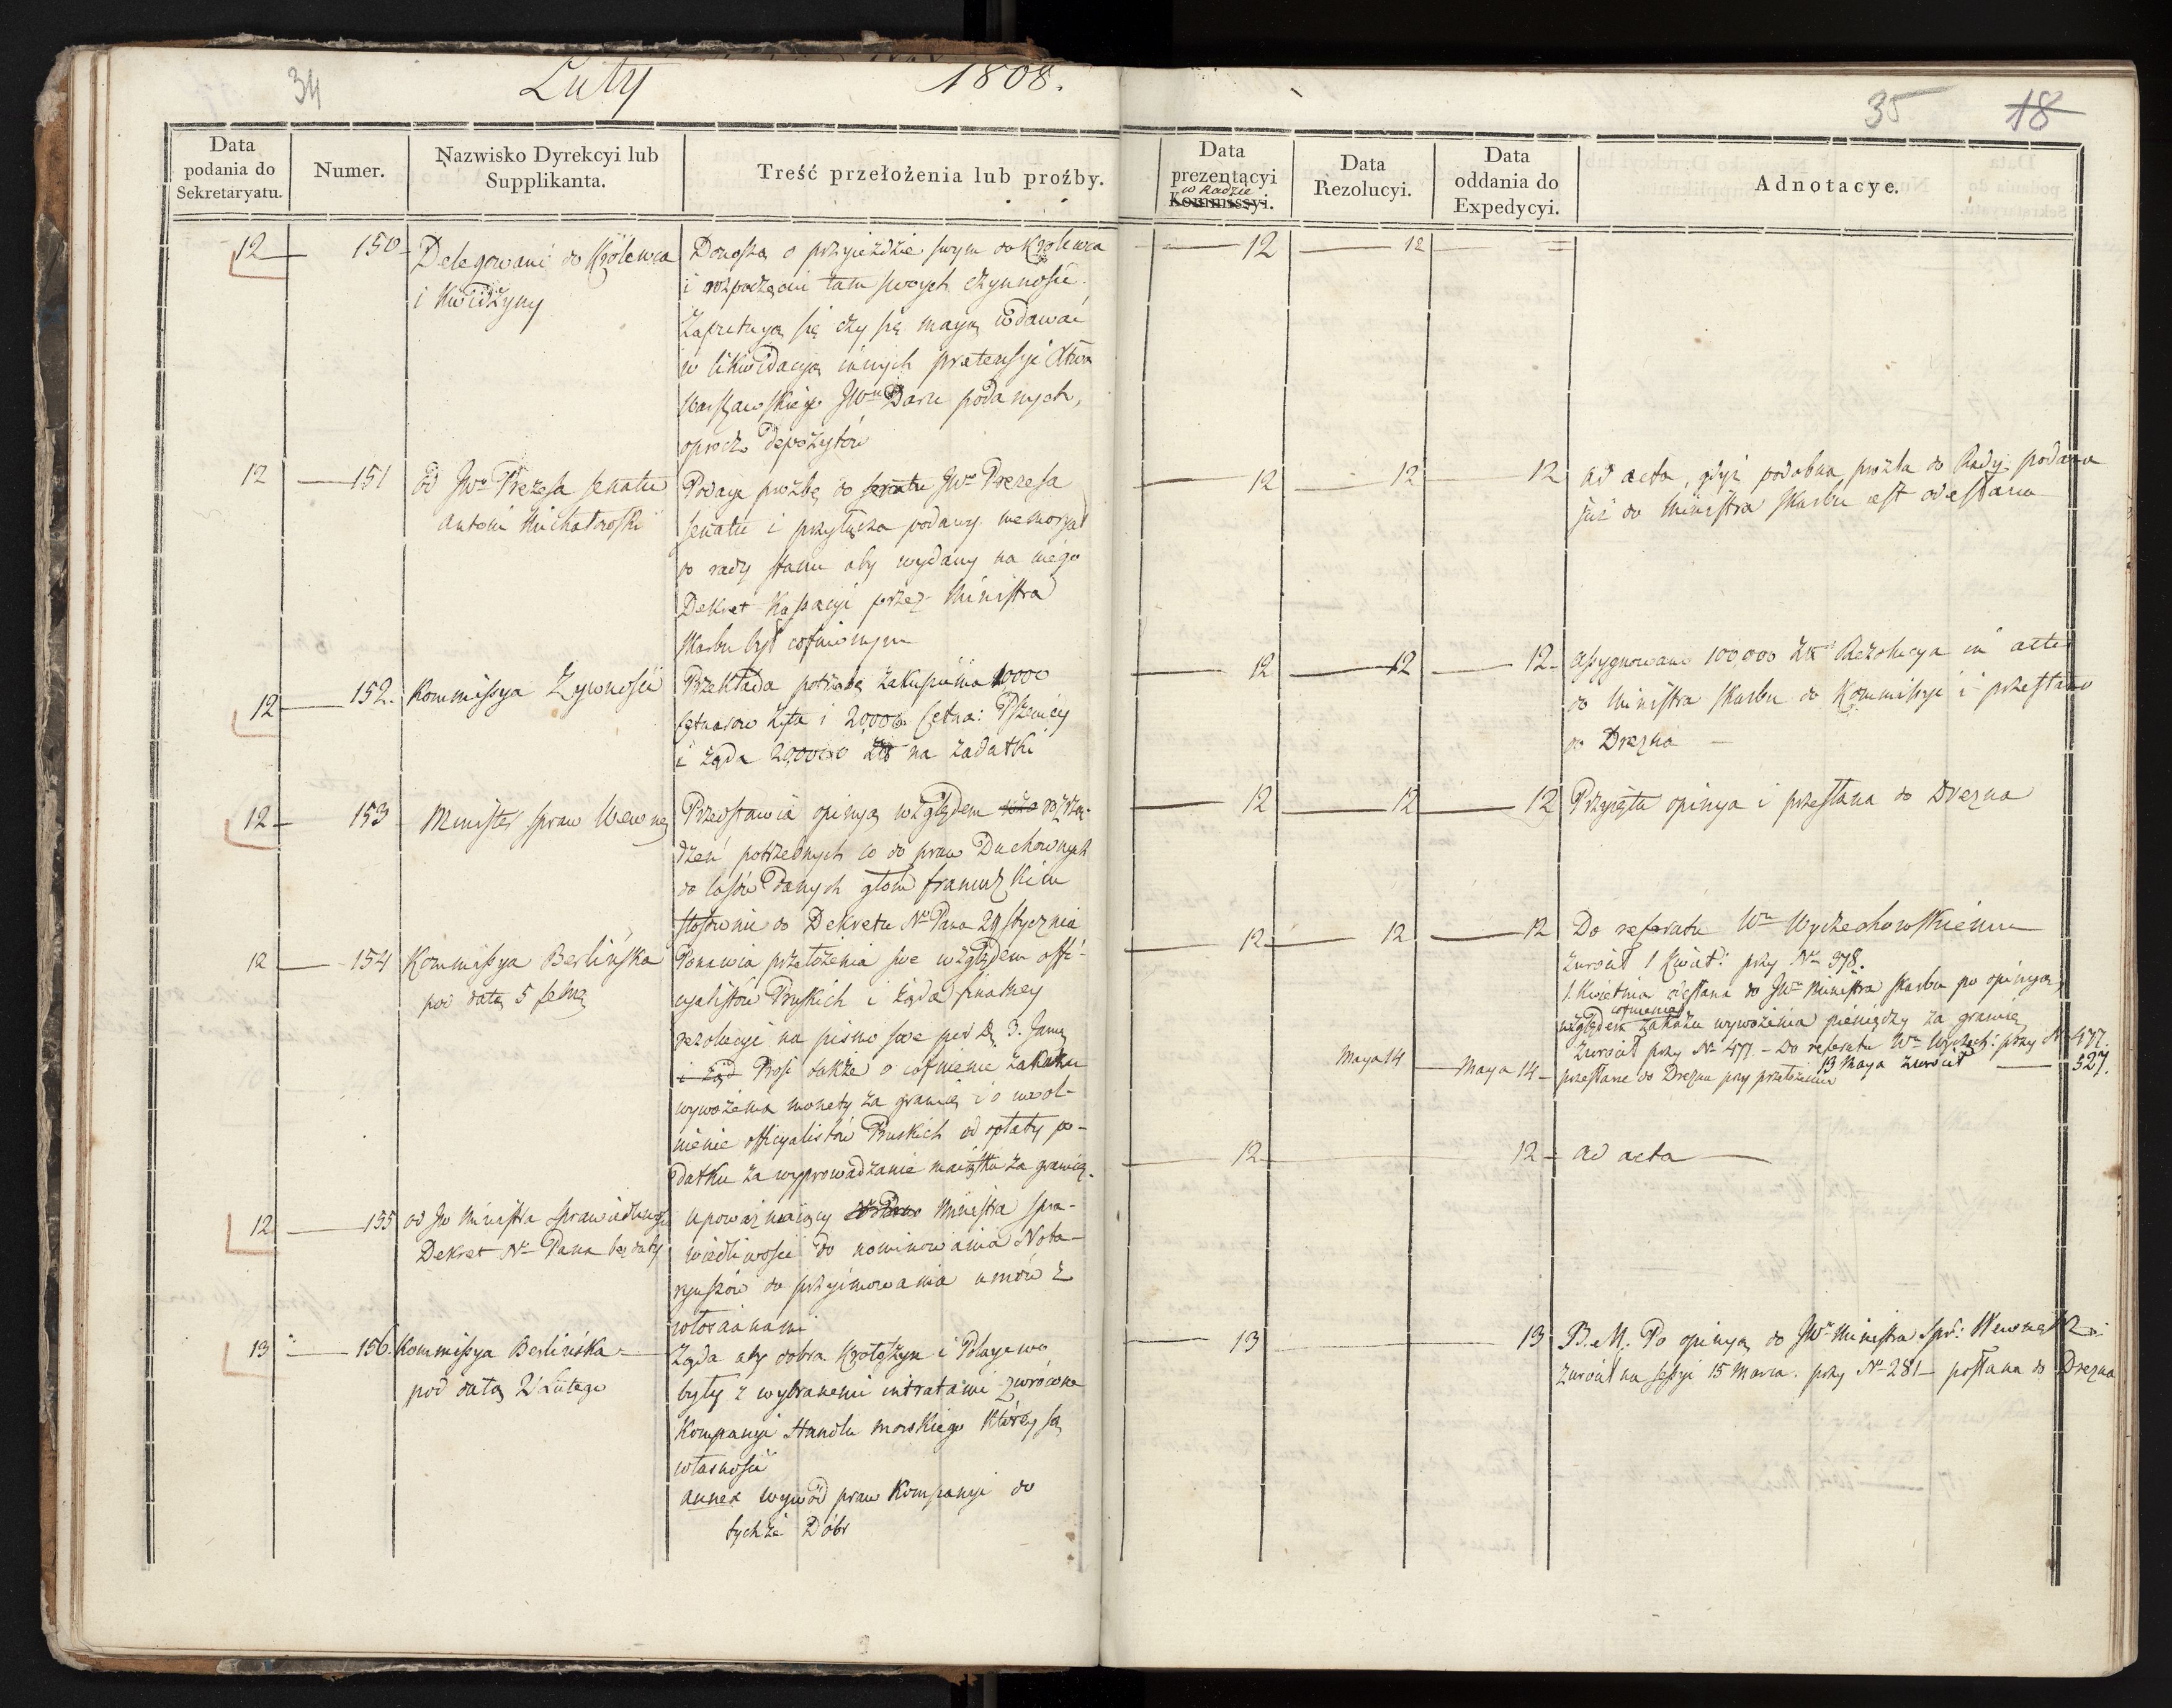 34
Luty 1808.
35 18
Data podania do Sekretaryatu.
Numer.
Nazwisko Dyrekcyi lub Supplikanta.
Treść przełożenia lub proźby.
Data prezentacyi w Radzie Kommissyi.
Data Rezolucyi.
Data oddania do Expedycyi.
Adnotacye.
12 150 Delegowani do Królewca
i Kwidzyny
Donoszą o przyieździe swym do Królewca
i rozpoczęciu tam swych czynności.
Zapytuią się czy się maią wdawać
w likwidacyą innych pretensyi Xtwa
Warszawskiego podanych,
oprócz depozytów
12 12 =
12 151 od JWo Prezesa Senatu
Antoni Michałowski
Podaje proźbę do Senatu JWo Prezesa
Senatu i przyłącza podany memoryał
do rady stanu aby wydany na niego
Dekret Kassacyi przez Ministra
Skarbu był cofnionym
12 12 12 ad acta, gdyż podobna proźba do Rady podana
już do Ministra Skarbu jest odesłana
12 152. Kommissya Żywności
Przekłada potrzebę zakupienia 10000
Cetnarow żyta i 20000 Cetna: Pszenicy
i żąda 200000 Zł na zadatki
12 12 12 assygnowano 100,000 Zł Rezolucya in actis
do Ministra Skarbu do Kommissyi i przesłano
do Drezna
12 153 Minister spraw Wewnę
Przedstawia opinyą względem rozrzą-
dzeń potrzebnych co do praw Duchownych
do lasów danych
stosownie do Dekretu No Pana 29 stycznia
12 12 12 Przyięta opinya i przesłana do Drezna
12 154 Kommissya Berlińska
pod datą 5 febru
Ponawia przełożenia swe względem offi-
cyalistów Pruskich i żąda finalney
rezolucyi na pismo swe pod D. 3. Janu
i żąd Prosi także o cofnienie zakazu
wywożenia monety za granicę i o uwol-
nienie officyalistów Pruskich od opłaty po-
datku za wyprowadzanie maiątku za granicę.
12 12 12 Do referatu Wu Wyczechowskiemu
zwrócił 1 Kwiet: przy No 378.
1. Kwietnia odesłana do JWo Ministra Skarbu po opinyą
cofnienia
względem zakazu wywożenia pieniędzy za granicę
zwrócił przy No 477 – Do referatu Wu Wyczech: przy No 477.
13 Maya zwrócił 527.
Maya 14 Maya 14 przesłane do Drezna przy przełożeniu
12 155 od Jw Ministra Sprawiedliwo
Dekret No Pana bez daty
upoważniaiący Ministra Spra-
wiedliwości do nominowania Nota-
ryuszów do przyimowania umów z
włościanami
12 12 ad acta
13 156. Kommissya Berlińska
pod datą 2 Lutego
Żąda aby dobra Krotoszyn i
były z wybranemi intratami zwrócone
Kompanyi Handlu morskiego którey są
własnością
annex wywód praw Kompanyi do
tychże Dóbr
13 13 B.M. Po opinyą do JWo Ministra Spr: Wewnę
zwrócił na sessyi 15 Marca. przy No 281 – posłana do Drezna